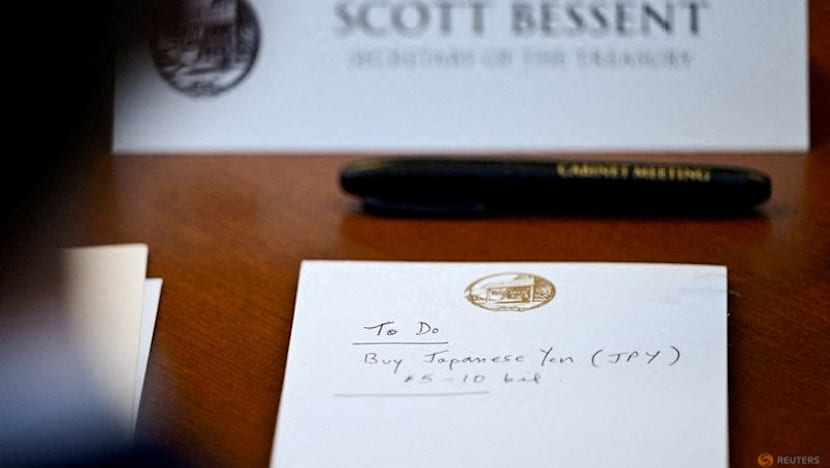 SCOTT BESSENT
SECRETARY OF THE TREASURY
CABINET MEETING
To Do
Buy Japanese Yen (JPY)
$5-10 bil
REUTERS